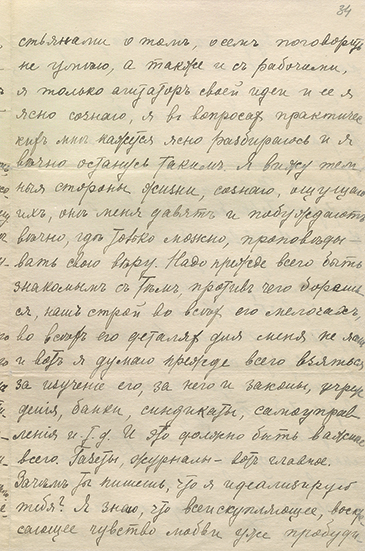 34
стьянами о томъ, о семъ поговорить
не умѣю, а также и съ рабочими,
я только агитаторъ своей идеи и ее я
ясно сознаю, я въ вопросахъ практичес
кихъ мнѣ кажется ясно разбираюсь и я
вѣчно останусь такимъ. Я вижу тем
ныя стороны жизни, сознаю, ощущаю
ихъ, онѣ меня давятъ и побуждаютъ
вѣчно, гдѣ только можно, проповѣды-
вать свою вѣру. Надо прежде всего быть
знакомымъ съ тѣмъ, противъ чего борешь
ся, нашъ строй во всѣхъ его мелочахъ,
во всѣхъ его деталяхъ для меня не ясенъ
и вотъ я думаю прежде всего взяться
за изученіе его, за него и законы, учреж
денія, банки, синдикаты, самоуправ
ленія и т.д. И это должно быть важнѣе
всего. Газеты, журналы - вотъ главное.
Зачѣмъ ты пишешь, что я идеализирую
тебя? Я знаю, что всеискупляющее, воскре
сающее чувство любви уже пробуди